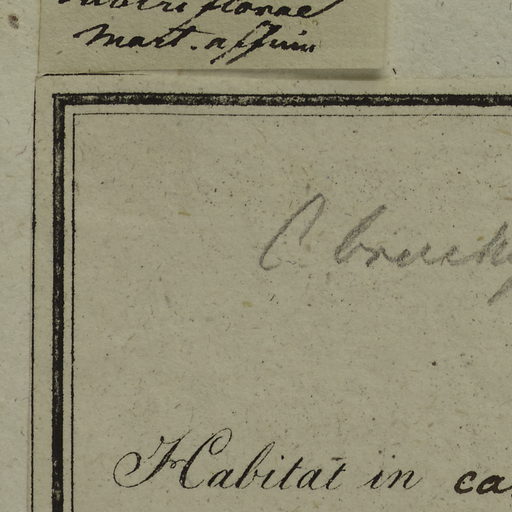 florae
Mart. affinis
C brachy
Habitat in ca